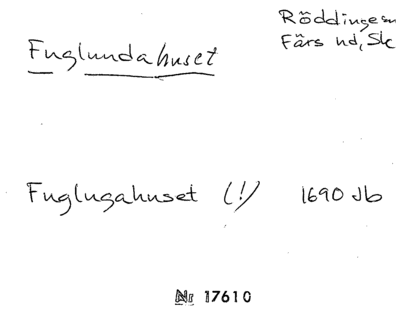 Röddinge sn
Färs hd, Sk
Fuglundahuset
Fuglugahuset (!) 1690 Jb
Nr 17610